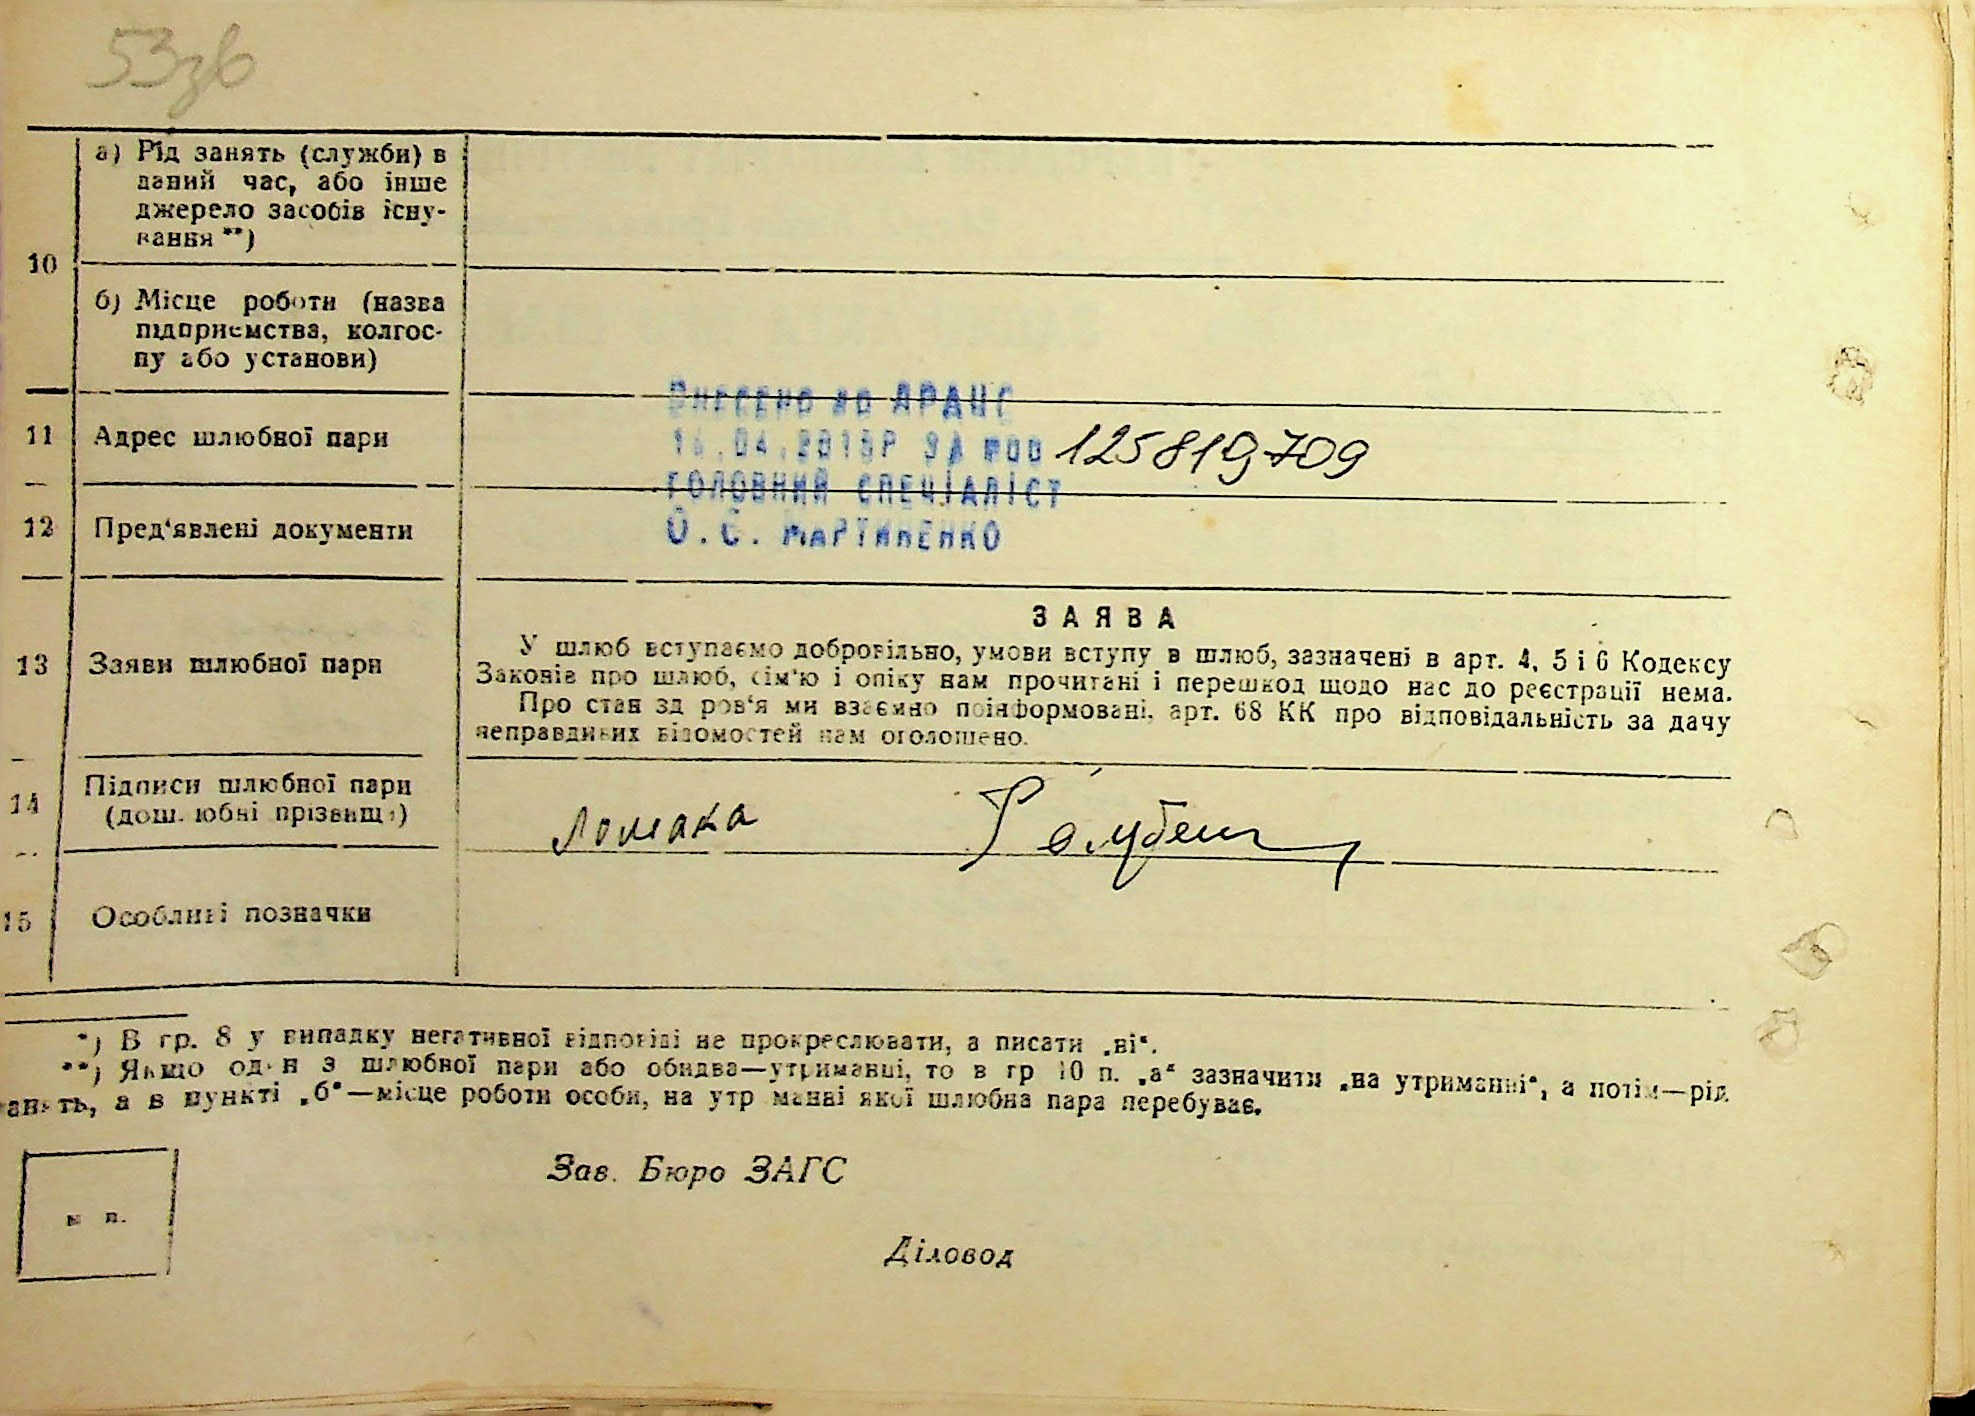 53зв
а) Рід занять (служби) в
даний час, або інше
джерело засобів існу-
вання **)
10
б) Місце роботи (назва
підприємства, колгос-
пу або установи)
ВНЕСЕНО ДО ДРАЦС
11 Адрес шлюбної пари
.04. ЗА 125819709
ГОЛОВНИЙ СПЕЦІАЛІСТ
12 Пред'явлені документи
О.Є. МАРТИНЕНКО
ЗАЯВА
У шлюб вступаємо добровільно, умови вступу в шлюб, зазначені в арт. 4, 5 і 6 Кодексу
13 Заяви шлюбної пари
Законів про шлюб, сім'ю і опіку нам прочитані і перешкод щодо нас до реєстрації нема.
Про стан здоров'я ми взаємно поінформовані, арт. 68 КК про відповідальність за дачу
неправдивих відомостей нам оголошено.
14 Підписи шлюбної пари
(дошлюбні прізвища)
Ломака Голубенц
15 Особливі позначки
*) В гр. 8 у випадку негативної відповіді не прокреслювати, а писати „ні“.
**) Якщо один з шлюбної пари або обидва—утриманці, то в гр 10 п. „а“ зазначити „на утриманні“, а потім—рід
занять, а в пункті „б“—місце роботи особи, на утриманні якої шлюбна пара перебуває.
Зав. Бюро ЗАГС
м п.
Діловод